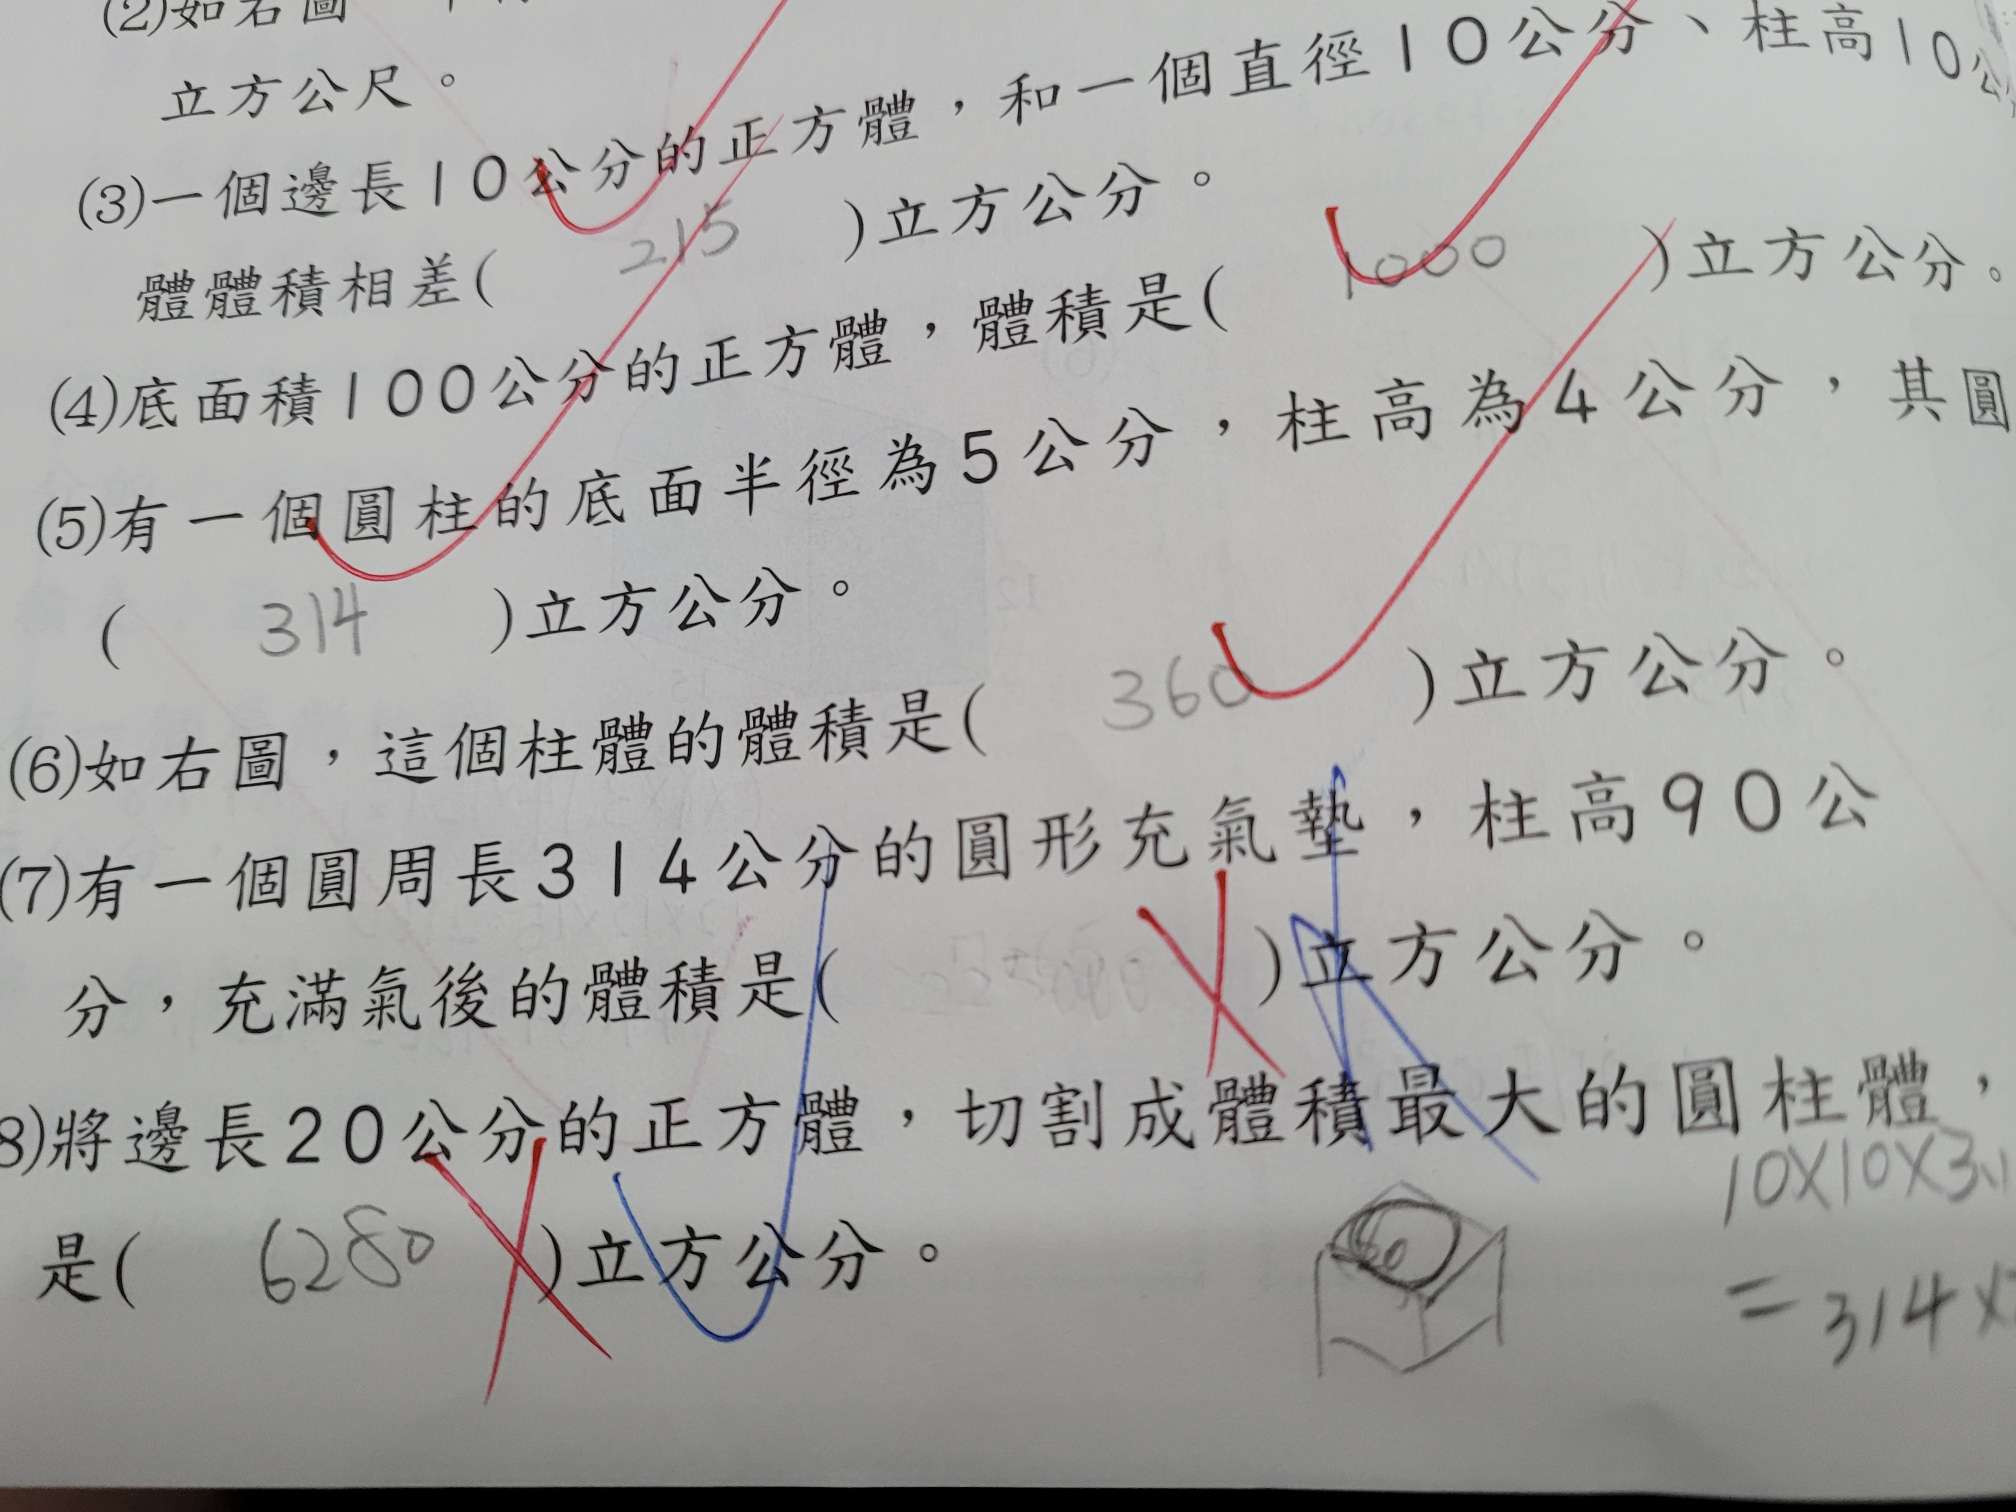 (2)如右圖
立方公尺。
(3)一個邊長10公分的正方體，和一個直徑10公分、柱高10公
體體積相差( 215 )立方公分。
(4)底面積100公分的正方體，體積是( 1000 )立方公分。
(5)有一個圓柱的底面半徑為5公分，柱高為4公分，其圓
( 314 )立方公分。
(6)如右圖，這個柱體的體積是( 360 )立方公分。
(7)有一個圓周長314公分的圓形充氣墊，柱高90公
分，充滿氣後的體積是( )立方公分。
8)將邊長20公分的正方體，切割成體積最大的圓柱體，
10×10×3.1
是( 6280 )立方公分。
=314×